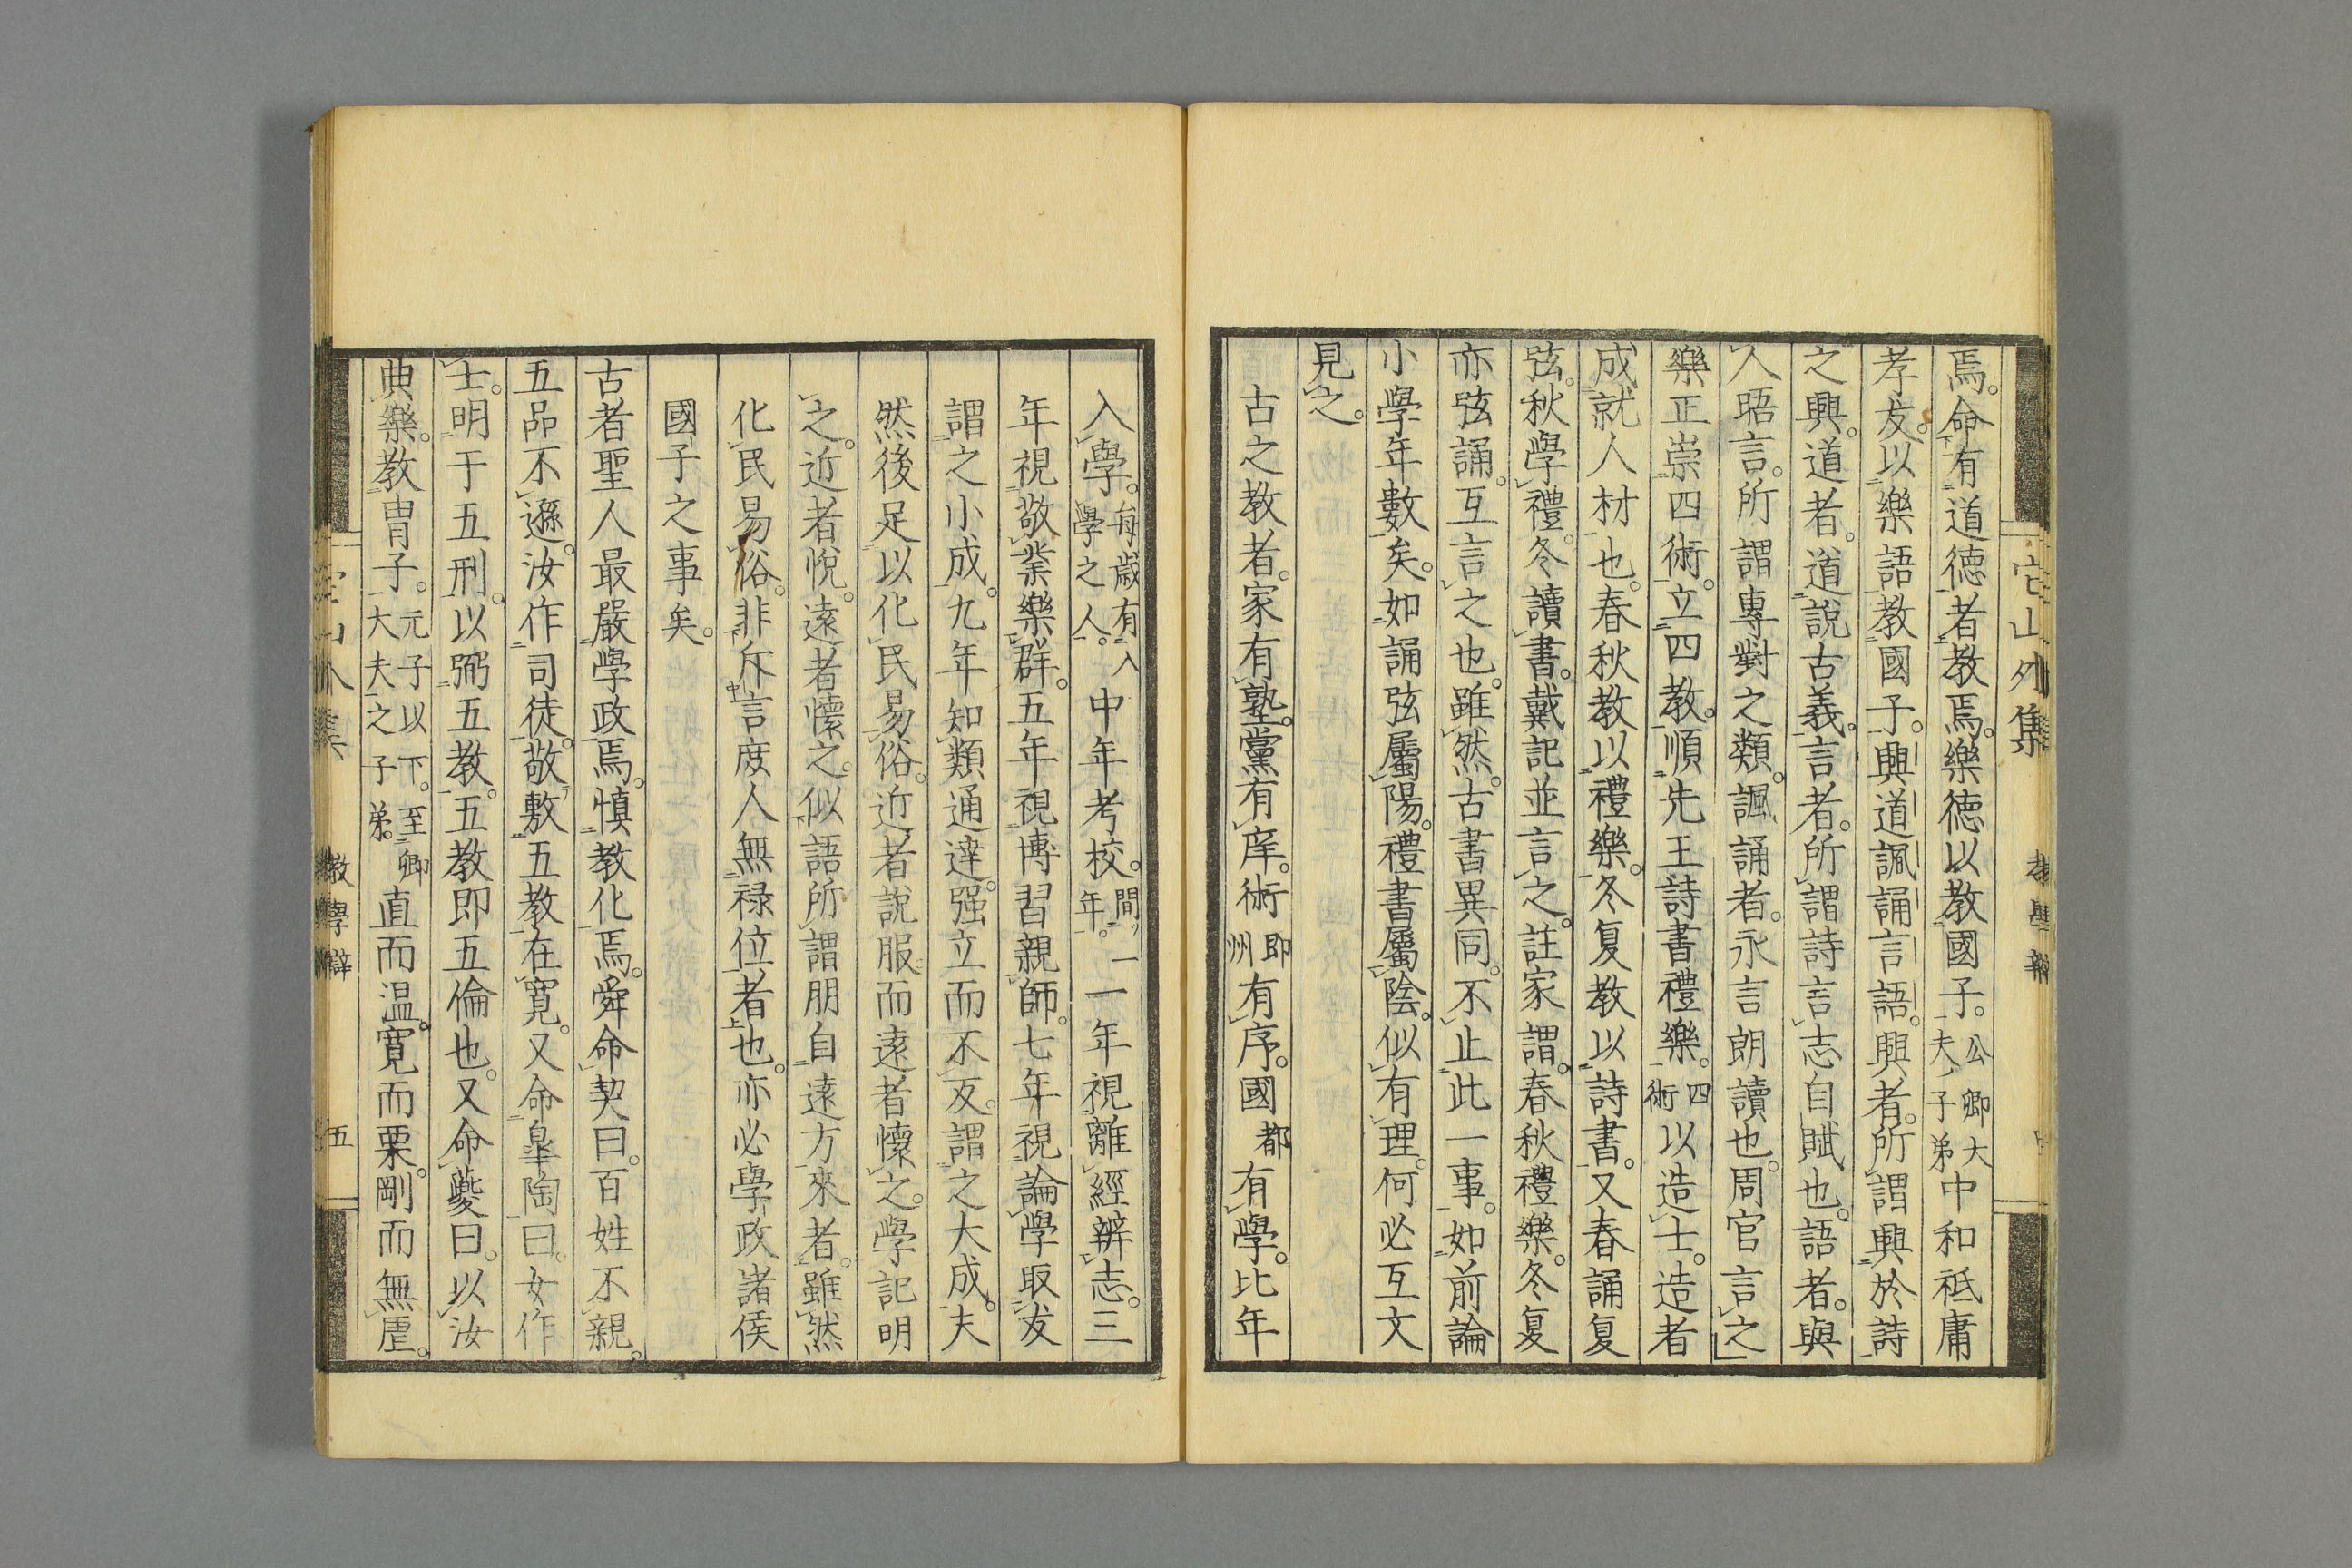 焉。命有道德者教焉。樂德以教國子。公卿大夫子弟中和祗庸
孝友。以樂語教國子。興道諷誦言語。興者。所謂興於詩
之興。道者。道說古義。言者。所謂詩言志自賦也。語者。與
人晤言。所謂專對之類。諷誦者。永言朗讀也。周官言之
樂正崇四術。立四教。順先王詩書禮樂。四術以造士。造者
成就人材也。春秋教以禮樂。冬夏教以詩書。又春誦夏
弦。秋學禮。冬讀書。戴記並言之。註家謂。春秋禮樂。冬夏
亦弦誦。互言之也。雖然。古書異同。不止此一事。如前論
小學年數矣。如誦弦屬陽。禮書屬陰。似有理。何必互文
見之。
古之教者。家有塾。黨有庠。術即州有序。國都有學。比年
它山外集
教學辯
入學。每歲有入學之人。中年考校。間一年。一年視離經辨志。三
年視敬業樂群。五年視博習親師。七年視論學取友
謂之小成。九年知類通達。强立而不反。謂之大成。夫
然後足以化民易俗。近者說服而遠者懷之。學記明
之。近者悅。遠者懷之。似語所謂朋自遠方來者。雖然
化民易俗。非斥言庶人無祿位者也。亦必學政諸侯
國子之事矣。
古者聖人最嚴學政焉。慎教化焉。舜命契曰。百姓不親。
五品不遜。汝作司徒。敬敷五教。在寬。又命皐陶曰。女作
士。明于五刑。以弼五教。五教即五倫也。又命夔曰。以汝
典樂。教冑子。元子以下。至卿大夫之子弟。直而温。寬而栗。剛而無虐。
教學辯
五